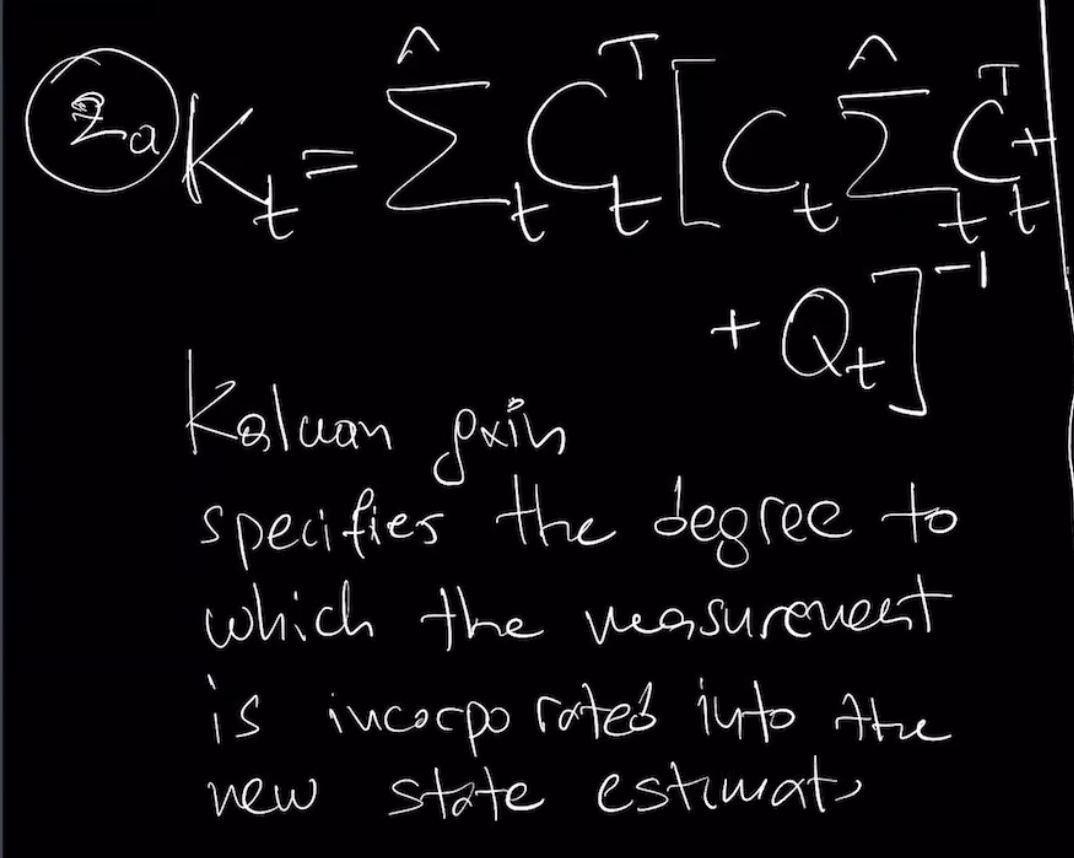 2a K_t = Σ̂_t C_t^T [ C_t Σ̂_t C_t^T +
+ Q_t ]^-1
Kalman gain
specifies the degree to
which the measurement
is incorporated into the
new state estimate